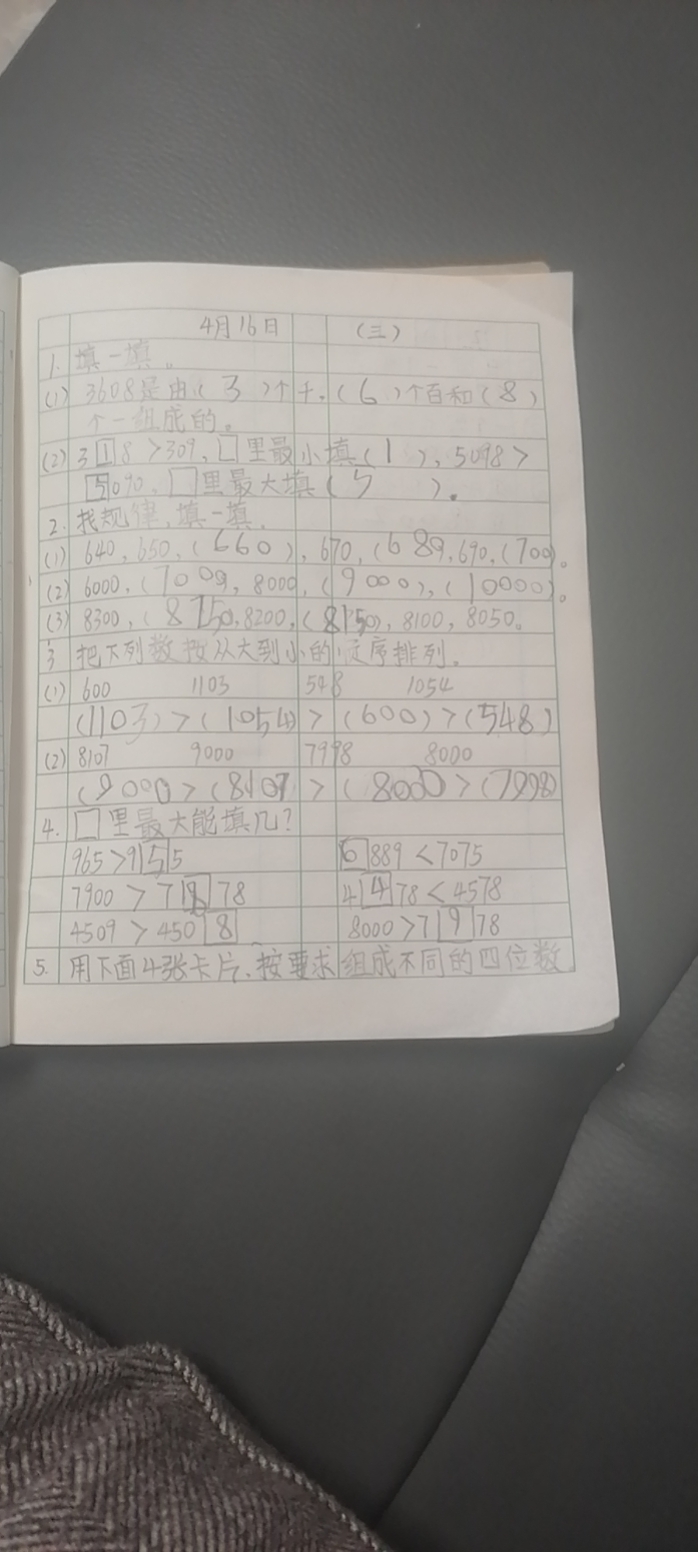 4月16日 (三)
1. 填一填。
(1) 3608是由(3)个千,(6)个百和(8)
个一组成的。
(2) 3[1]8>309,□里最小填(1),5098>
[5]090,□里最大填(5)。
2. 找规律,填一填。
(1) 640,650,(660),670,(689,690,(700)。
(2) 6000,(7000,8000,(9000),(10000)。
(3) 8300,(8250),8200,(8150),8100,8050。
3 把下列数按从大到小的顺序排列。
(1) 600 1103 548 1054
(1103)>(1054)>(600)>(548)
(2) 8107 9000 7998 8000
(9000>(8107>(8000>(7998)
4. □里最大能填几?
965>9[5]5 [6]889<7075
7900>7[8]78 4[4]78<4578
4509>450[8] 8000>7[9]78
5. 用下面4张卡片、按要求组成不同的四位数